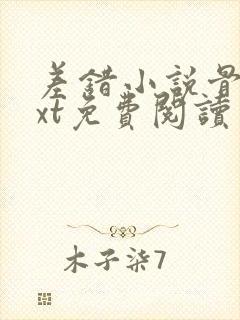 差錯小説骨
xt免費閱讀
木子柒7